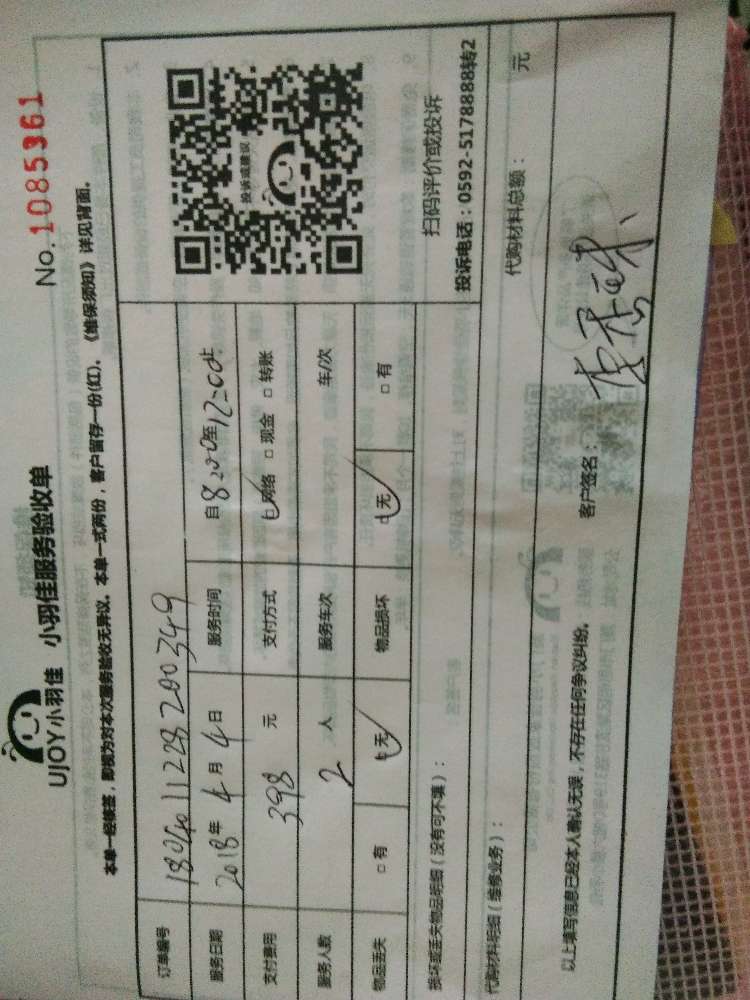 UJOY小羽佳 小羽佳服务验收单 No.1085361
本单一经被签，即视为对本次服务验收无异议。本单一式两份，客户留存一份(红)。《维保须知》详见背面。
订单编号 1804011228200349
服务日期 2018年4月4日 服务时间 自8:00至12:00止
支付费用 398 元 支付方式 ☑网络 □现金 □转账
服务人数 2 人 服务车次 车/次
物品丢失 □有 ☑无 物品损坏 ☑无 □有
投诉或建议
扫码评价或投诉
投诉电话：0592-5178888转2
损坏或丢失物品明细（没有可不填）：
代购材料明细（维修业务）： 代购材料总额： 元
以上填写信息已经本人确认无误，不存在任何争议纠纷。 客户签名：